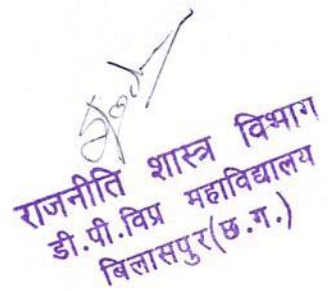 राजनीति शास्त्र विभाग
डी.पी.विप्र महाविद्यालय
बिलासपुर(छ.ग.)